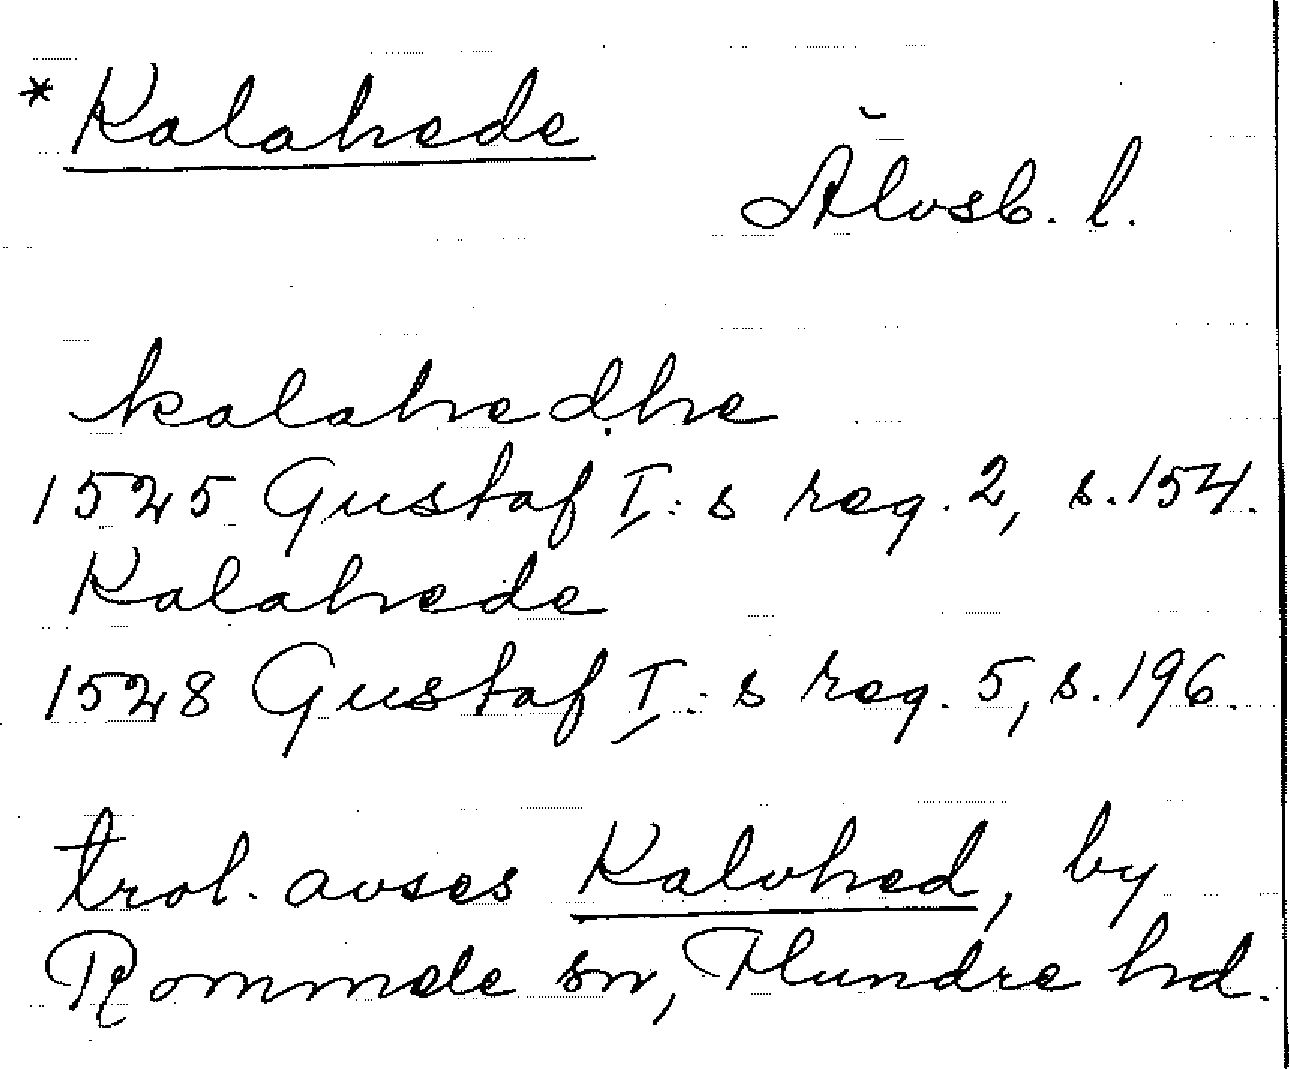 * Kalahede
Älvsb. l.
kalahedhe
1525 Gustaf I:s reg. 2, s. 154.
Kalahede
1528 Gustaf I:s reg. 5, s. 196.
trol. avses Kalvhed, by
Rommele sn, Flundre hd.